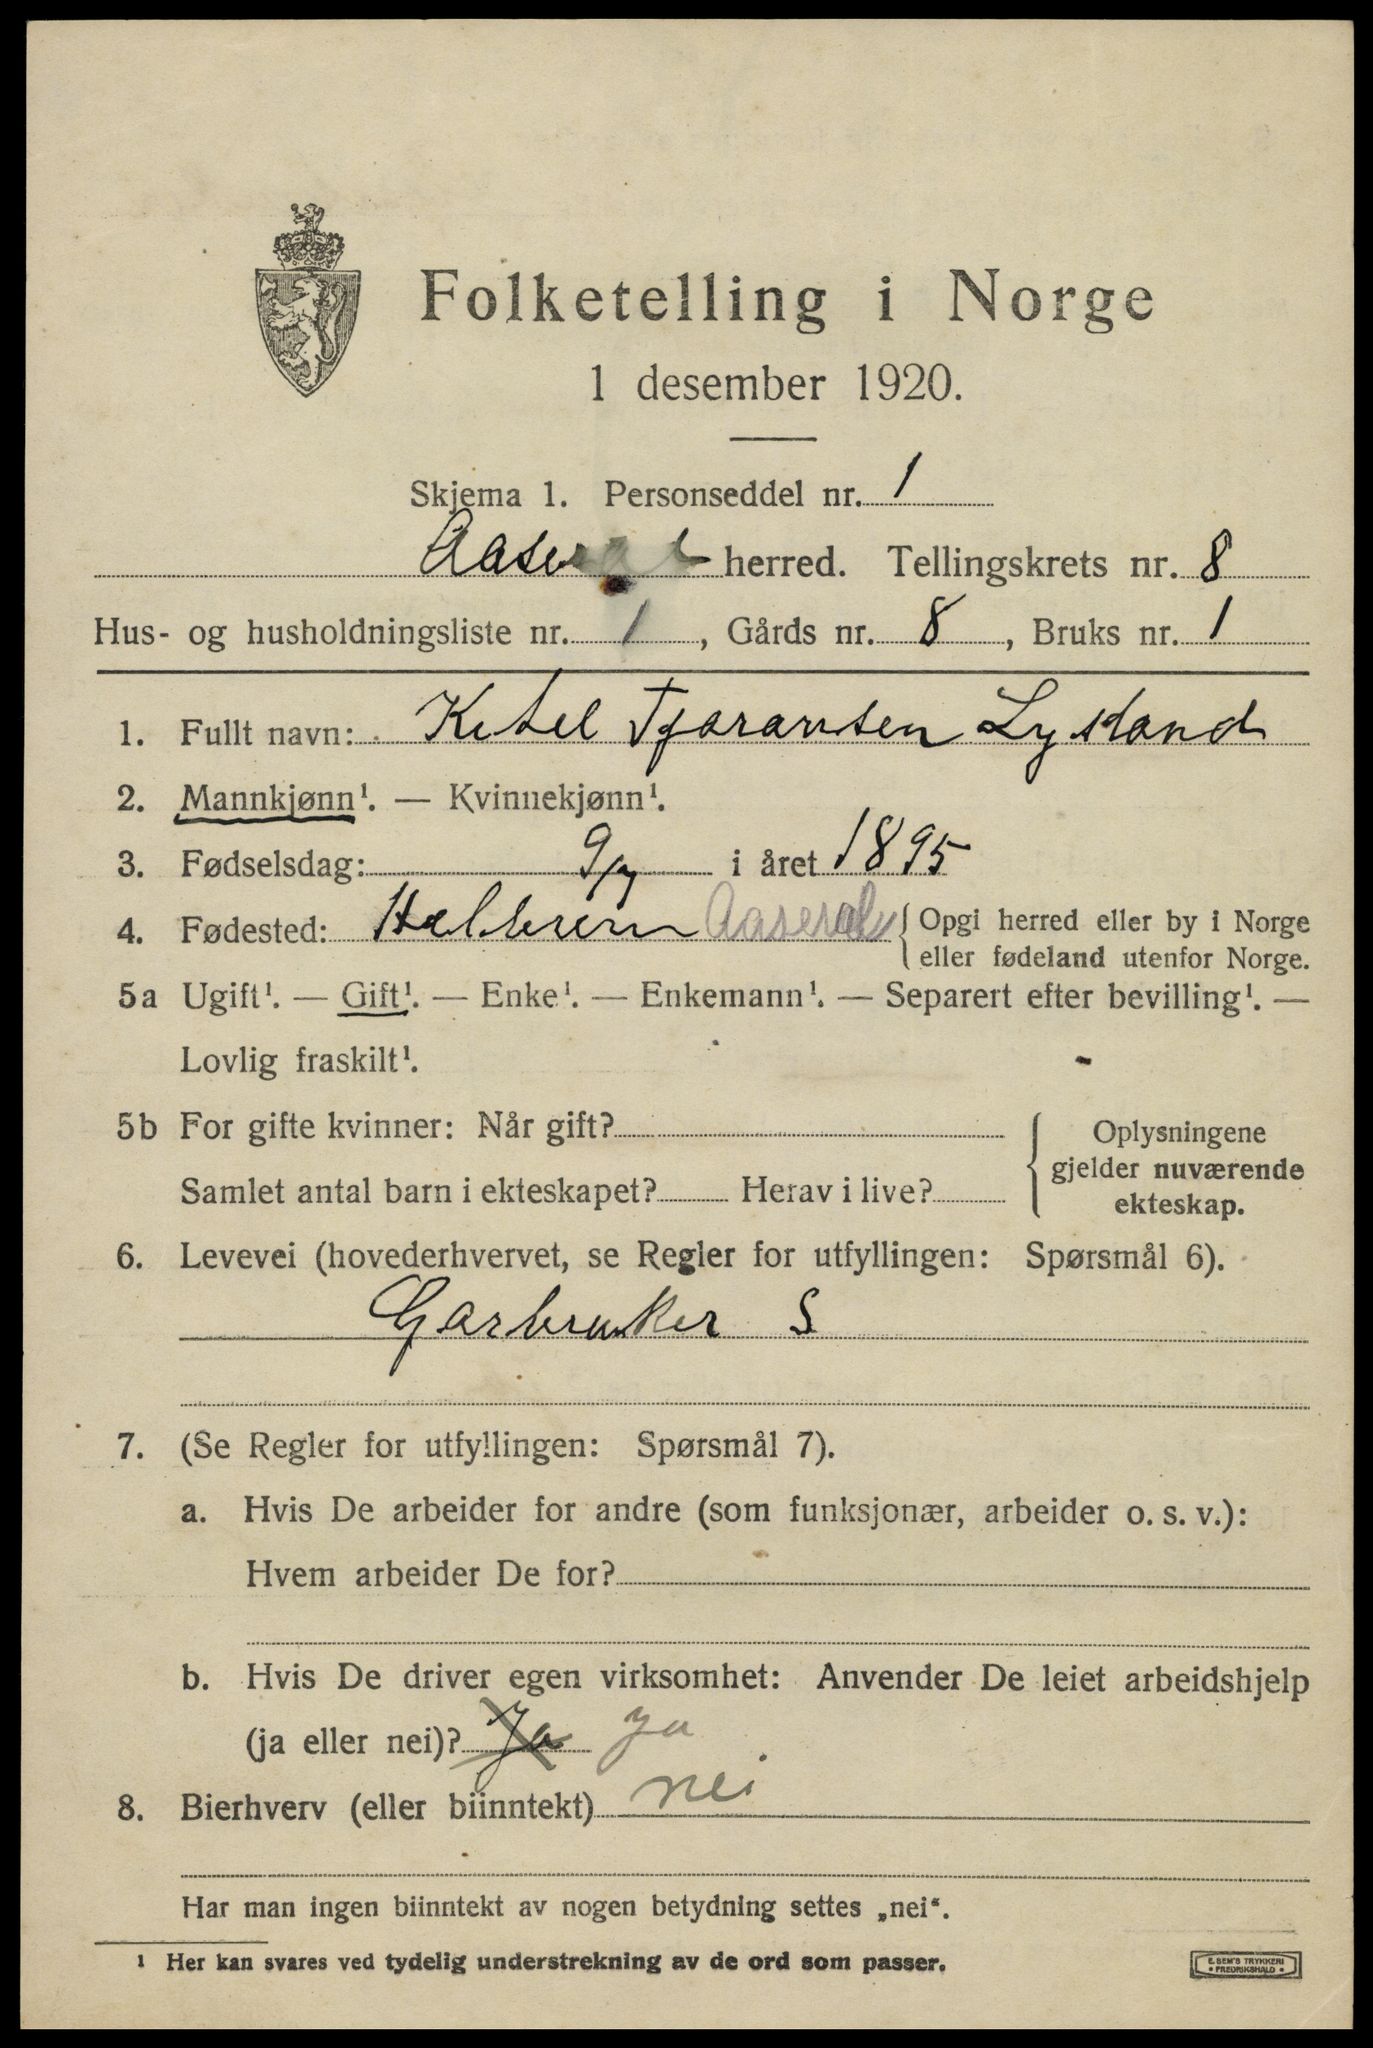 Folketelling i Norge
1 desember 1920.
Skjema 1. Personseddel nr. 1
Aaseral herred. Tellingskrets nr. 8
Hus- og husholdningsliste nr. 1, Gårds nr. 8, Bruks nr. 1
1. Fullt navn: Ketel Tjaransen Lysland
2. Mannkjønn¹. — Kvinnekjønn¹.
3. Fødselsdag: 9/7 i året 1895
4. Fødested: Aaseral { Opgi herred eller by i Norge
eller fødeland utenfor Norge.
5a Ugift¹. — Gift¹. — Enke¹. — Enkemann¹. — Separert efter bevilling¹. —
Lovlig fraskilt¹.
5b For gifte kvinner: Når gift?
Samlet antal barn i ekteskapet? Herav i live?
{ Oplysningene
gjelder nuværende
ekteskap.
6. Levevei (hovederhvervet, se Regler for utfyllingen: Spørsmål 6).
Garbruker S
7. (Se Regler for utfyllingen: Spørsmål 7).
a. Hvis De arbeider for andre (som funksjonær, arbeider o. s. v.):
Hvem arbeider De for?
b. Hvis De driver egen virksomhet: Anvender De leiet arbeidshjelp
(ja eller nei)? Ja ja
8. Bierhverv (eller biinntekt) nei
Har man ingen biinntekt av nogen betydning settes „nei“.
¹ Her kan svares ved tydelig understrekning av de ord som passer.
E. SEM'S TRYKKERI
• FREDRIKSHALD •